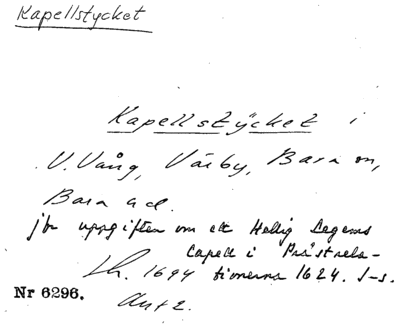 Kapellstycket
Kapellstycket i
V. Vång, Värby, Bara sn,
Bara hd.
jfr uppgiften om ett Hellig Legems
Capell i Prästrela-
Lh. 1694 tionerna 1624. I-s.
Nr 6296.
Ant 2.